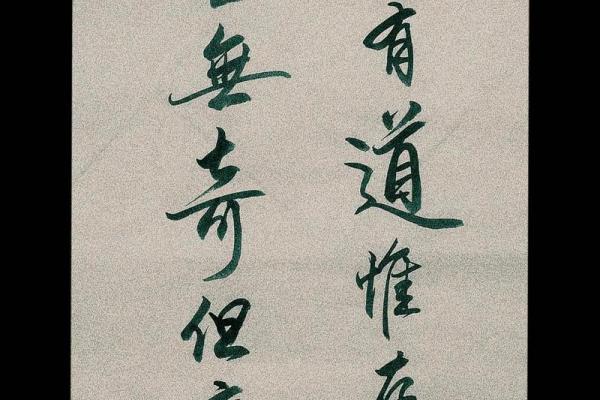 有道惟存
無奇但